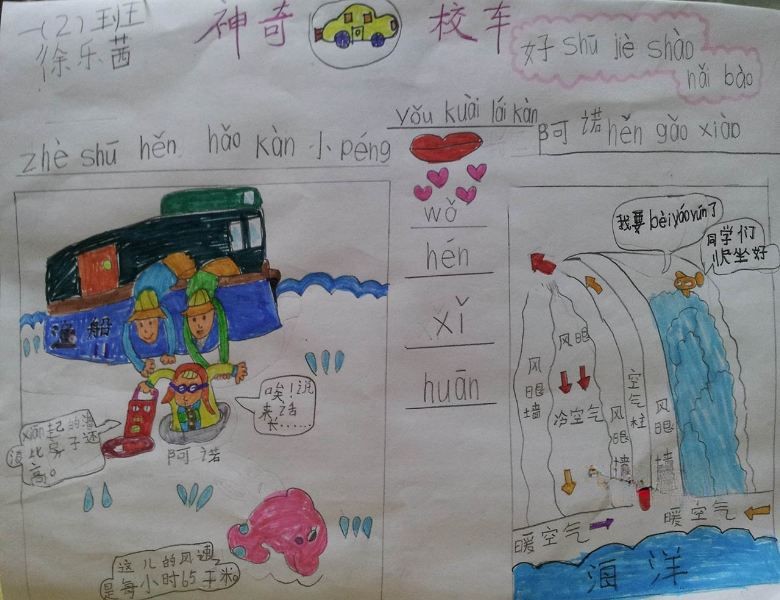 一(2)班
徐乐茜
神奇校车
好shū jiè shào
nǎi bào
zhè shū hěn hǎo kàn 小péng
yǒu kuài lái kàn
阿诺hěn gǎo xiào
wǒ
hén
xǐ
huān
渔船
唉!说
来话
长……
阿诺
这儿的风速
是每小时65千米。
我要bèi yáo yūn了
同学们
坐好
风眼墙
风眼
冷空气
风眼墙
空气柱
风眼墙
暖空气
暖空气
海洋